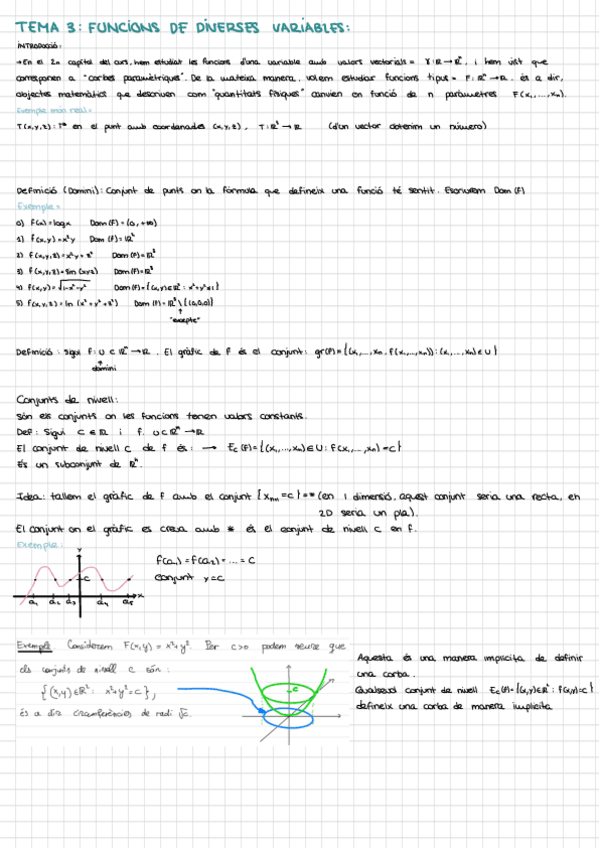 TEMA 3: FUNCIONS DE DIVERSES VARIABLES:
INTRODUCCIÓ:
→ En el 2n capítol del curs, hem estudiat les funcions d'una variable amb valors vectorials = γ: ℝ → ℝⁿ, i hem vist que
corresponen a "corbes paramètriques". De la mateixa manera, volem estudiar funcions tipus = F: ℝⁿ → ℝ, és a dir,
objectes matemàtics que descriuen com "quantitats físiques" canvien en funció de n paràmetres F(x₁,...,xₙ).
Exemple món real =
T(x,y,z): Tª en el punt amb coordenades (x,y,z), T: ℝ³ → ℝ (d'un vector obtenim un número)
Definició (Domini): Conjunt de punts on la fórmula que defineix una funció té sentit. Escriurem Dom(f)
Exemple =
0) f(x) = log x Dom(f) = (0, +∞)
1) f(x,y) = x²y Dom(f) = ℝ²
2) f(x,y,z) = x²y + z³ Dom(f) = ℝ³
3) f(x,y,z) = sin(xyz) Dom(f) = ℝ³
4) f(x,y) = √1-x²-y² Dom(f) = {(x,y) ∈ ℝ² : x²+y² ≤ 1}
5) f(x,y,z) = ln(x²+y²+z²) Dom(f) = ℝ³ \ {(0,0,0)}
↑
"excepte"
Definició: Sigui f: U ⊂ ℝⁿ → ℝ. El gràfic de f és el conjunt: gr(f) = {(x₁,...,xₙ, f(x₁,...,xₙ)) : (x₁,...,xₙ) ∈ U}
↑
domini
Conjunts de nivell:
Són els conjunts on les funcions tenen valors constants.
Def: Sigui c ∈ ℝ i f: U ⊂ ℝⁿ → ℝ
El conjunt de nivell c de f és: → Ec(f) = {(x₁,...,xₙ) ∈ U : f(x₁,...,xₙ) = c}
És un subconjunt de ℝⁿ.
Idea: tallem el gràfic de f amb el conjunt {xₙ₊₁ = c} = * (en 1 dimensió, aquest conjunt seria una recta, en
2D seria un pla).
El conjunt on el gràfic es creua amb * és el conjunt de nivell c en f.
Exemple:
f(a₁) = f(a₂) = ... = c
conjunt y = c
y
c
a₁ a₂ a₃ a₄ a₅ x
Exemple Considerem F(x,y) = x²+y². Per c>0 podem veure que
els conjunts de nivell c són:
{(x,y) ∈ ℝ² : x²+y² = c},
és a dir circumferències de radi √c.
c
Aquesta és una manera implícita de definir
una corba.
Qualsevol conjunt de nivell Ec(f) = {(x,y) ∈ ℝ² : f(x,y) = c}
defineix una corba de manera implícita